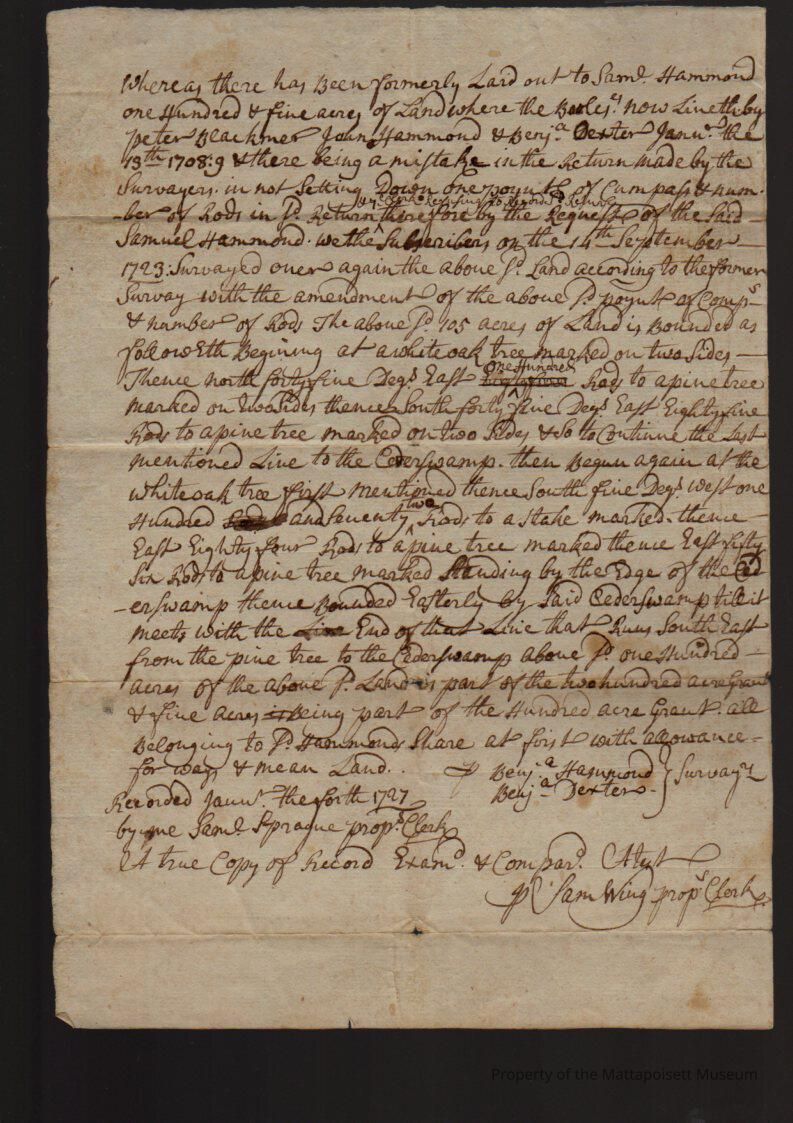 Whereas there has Been formerly Laid out to Samll. Hammond
one Hundred & five acres of Land where the now Liveth by
peter Blackmer John Hammond & Benja. Dexter Janur. the
13th 1708:9 & there being a mistake in the Return made by the
Survayers in not Setting Down one poynt of Cumpass & num-
-ber of Rods in sd. Return therefore by the Request of the Said
ye Clerk refusing to Record sd Return
Samuel Hammond. we the Subscribers on the 14th September
1723: Survayed over again the above sd. Land according to the former
Survay with the amendment of the above sd. poynt of Comps
& number of Rods The above sd. 105 acres of Land is Bounded as
followeth Begining at a white oak tree marked on two Sides —
Thence north forty five Degs. East one Hundred Rods to a pine tree
marked on two Sides thence South forty five Degs East Eighty five
Rods to a pine tree marked on two Sides & So to Continue the Last
mentioned Line to the Cederswamp. then Begun again at the
white oak tree first mentioned thence South five Degs. west one
Hundred and Seventy two Rods to a stake marked. thence
East Eighty four Rods to a pine tree marked thence East fifty
Six Rods to a pine tree marked Standing by the Edge of the Ced
-erswamp thence Bounded Easterly by Said Cederswamp till it
meets with the Line End of that Line that Runs South East
from the pine tree to the Cederswamp above sd. one Hundred —
acres of the above sd. Land is part of the two hundred acre Grant
& five acres is Being part of the Hundred acre Grant. all
Belonging to sd. Hammonds Share at first with allowance =
for ways & mean Land.. p Benja. Hammond } Survayrs
Benja. Dexter
Recorded Janur. the forth 1727
by me Samll Sprague props Clerk
A true Copy of Record Examd. & Compard. Attest
p Sam Wing props Clerk.
Property of the Mattapoisett Museum